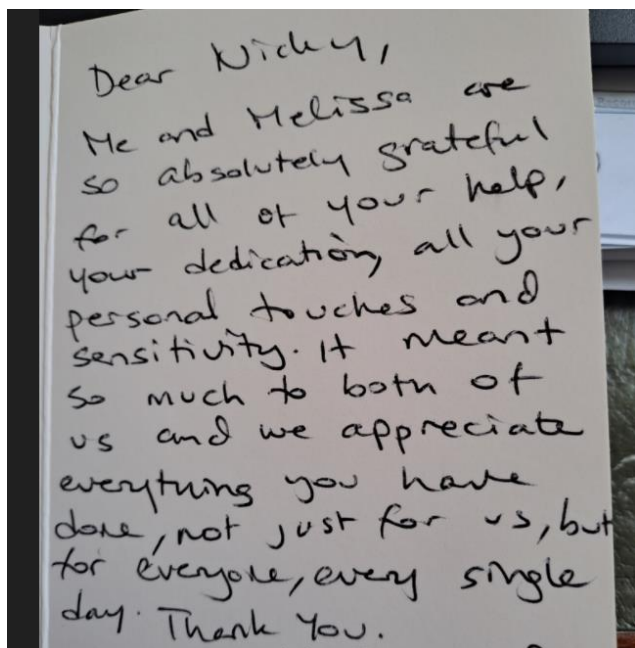 Dear Nicky,
Me and Melissa are
so absolutely grateful
for all of your help,
your dedication, all your
personal touches and
sensitivity. It meant
so much to both of
us and we appreciate
everything you have
done, not just for us, but
for everyone, every single
day. Thank You.